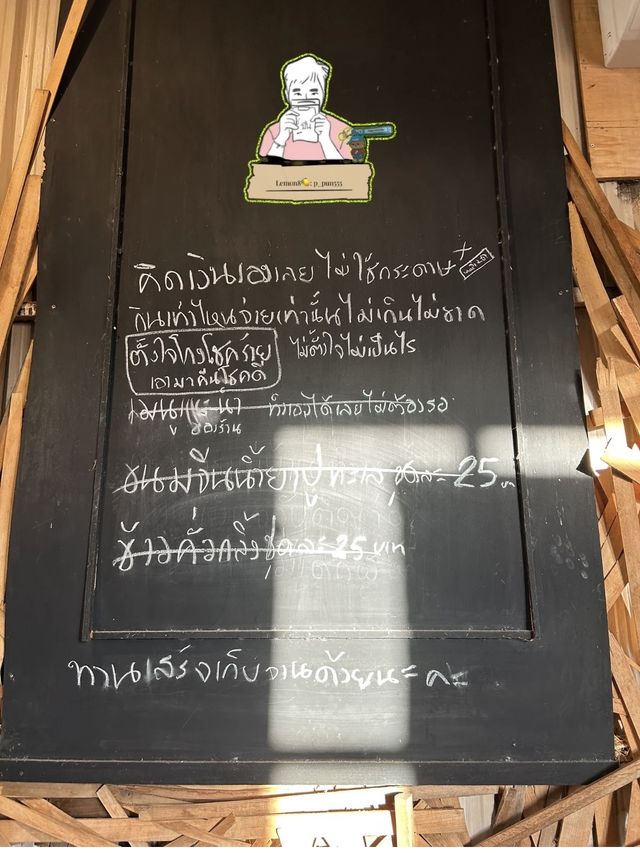 Lemon8🍋: p_pun555
คิดเงินเองเลย ไม่ใช้กระดาษ
กินเท่าไหนจ่ายเท่านั้นไม่เกินไม่ขาด
ตั้งใจโกงโชคร้าย ไม่ตั้งใจไม่เป็นไร
เอามาคืนโชคดี
เมนูแนะนำ ทำเองได้เลยไม่ต้องรอ
ของร้าน
ขนมจีนน้ำยาปูทะเล ชุดละ 25
ข้าวคั่วกลิ้งชุดละ 25 บาท
ทานเสร็จเก็บจานด้วยนะคะ